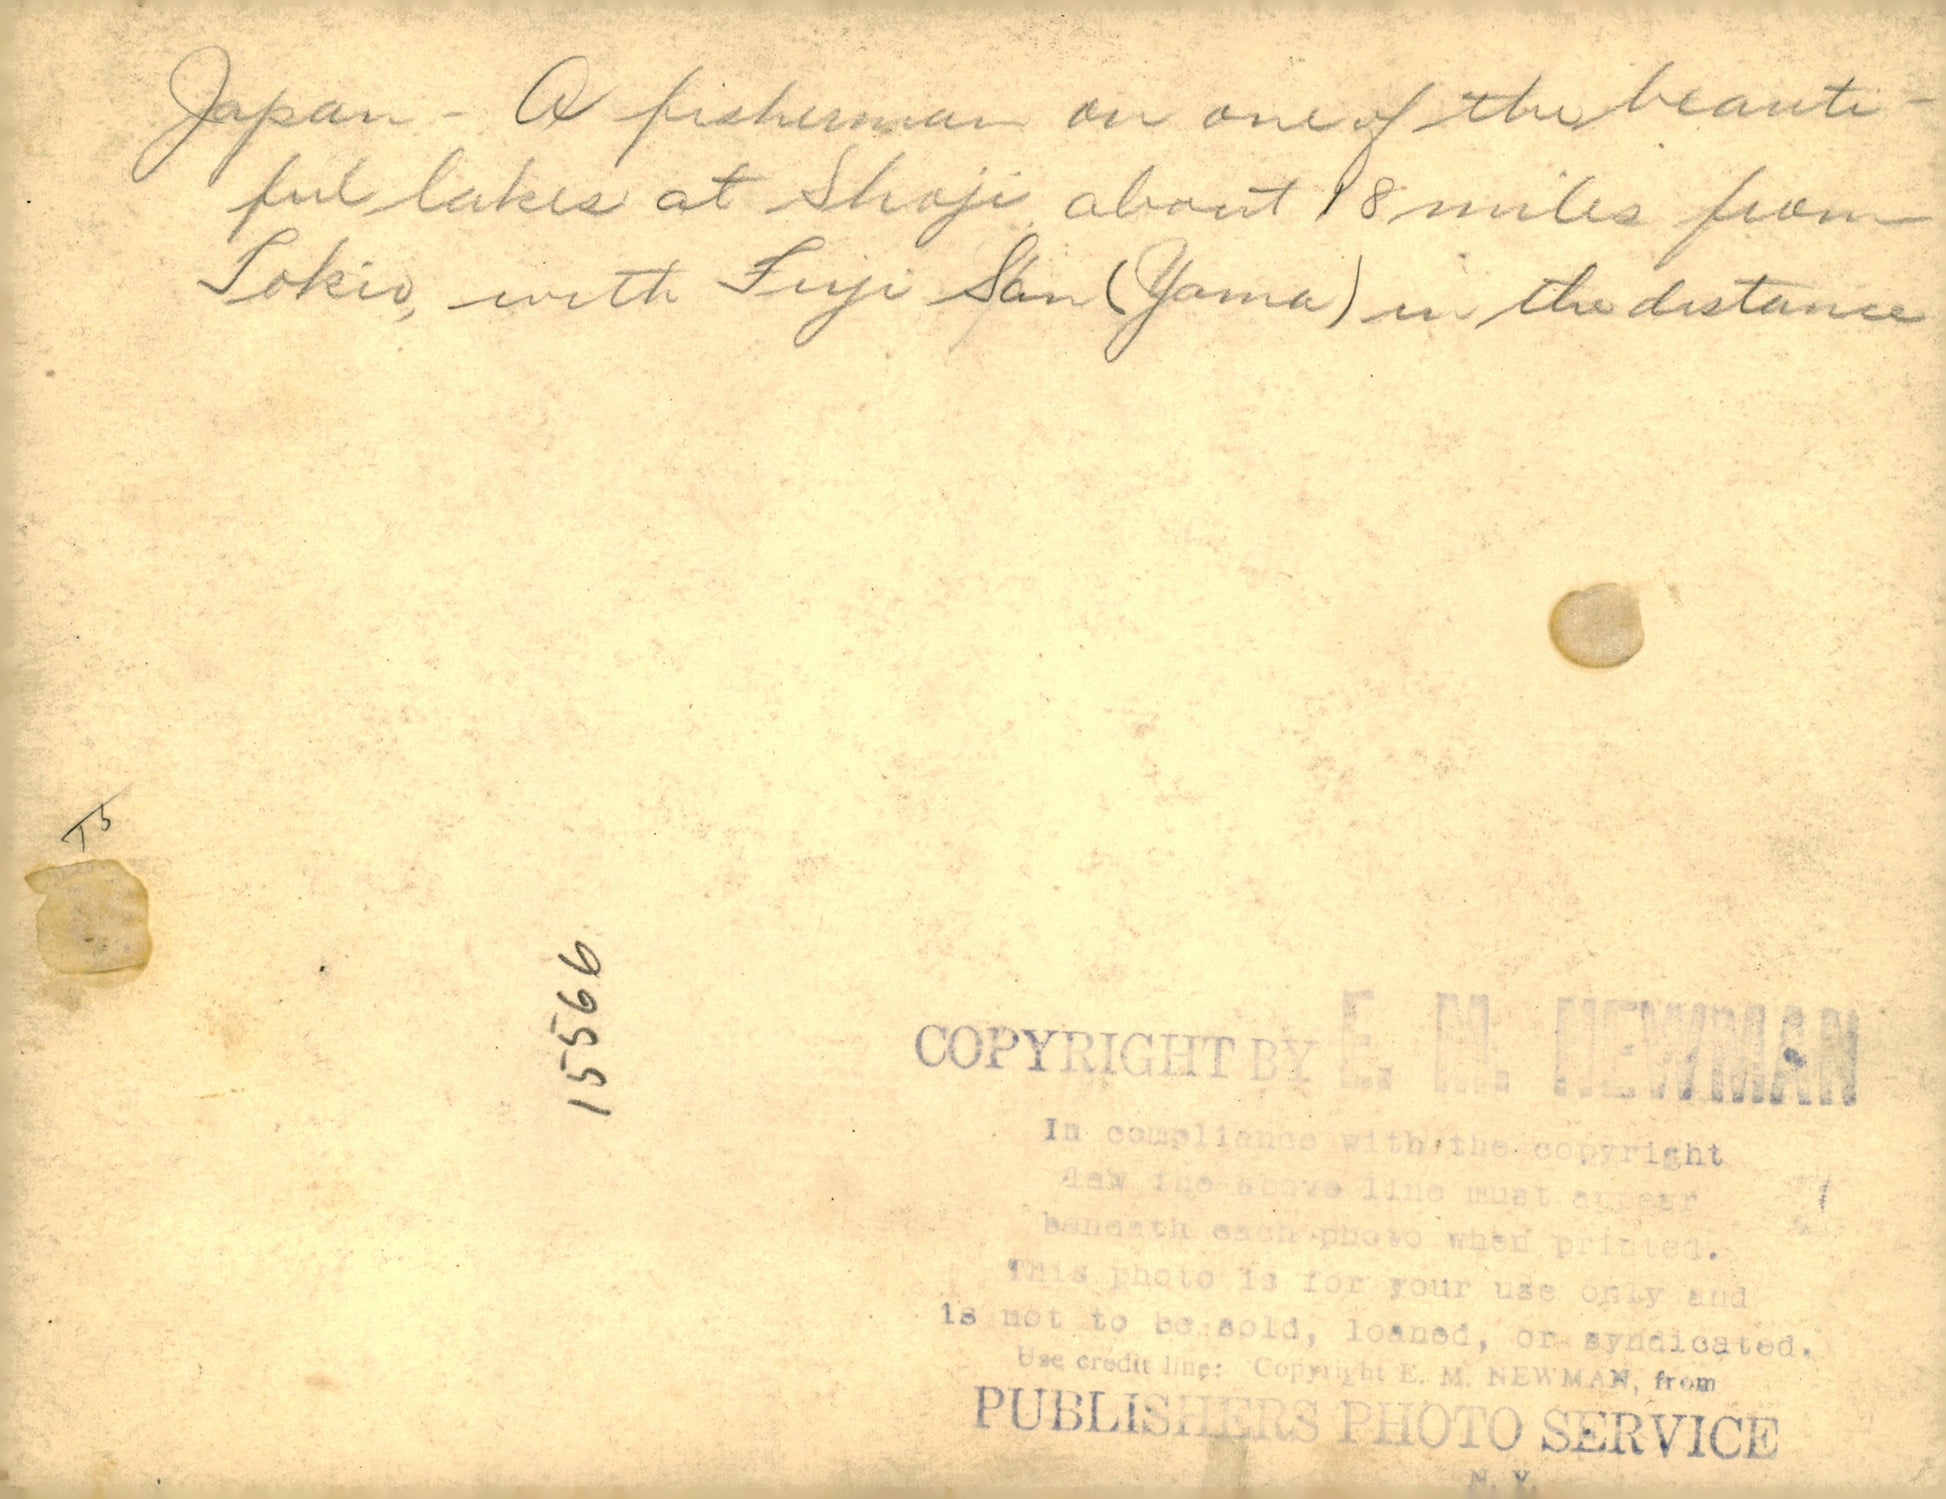 Japan - A fisherman on one of the beauti-
ful lakes at Shoji about 18 miles from
Tokio, with Fuji San (Yama) in the distance
T5
15566
COPYRIGHT BY E. M. NEWMAN
In compliance with the copyright
law the above line must appear
beneath each photo when printed.
This photo is for your use only and
is not to be sold, loaned, or syndicated.
Use credit line: Copyright E. M. NEWMAN, from
PUBLISHERS PHOTO SERVICE
N. Y.